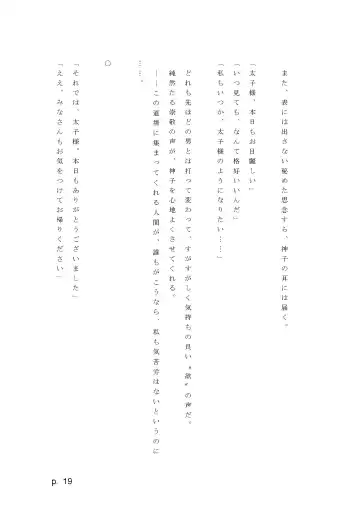 また、表には出さない秘めた思念すら、神子の耳には届く。
『太子様、本日もお日麗しい』
『いつ見ても、なんて格好いいんだ』
『私もいつか、太子様のようになりたい……』
どれも先ほどの男とは打って変わって、すがすがしく気持ちの良い〝欲〟の声だ。
純然たる崇敬の声が、神子を心地よくさせてくれる。
――この道場に集まってくれる人間が、誰もがこうなら、私も気苦労はないというのに
……。
○
「それでは、太子様。本日もありがとうございました」
「ええ、みなさんもお気をつけてお帰りください」
p. 19